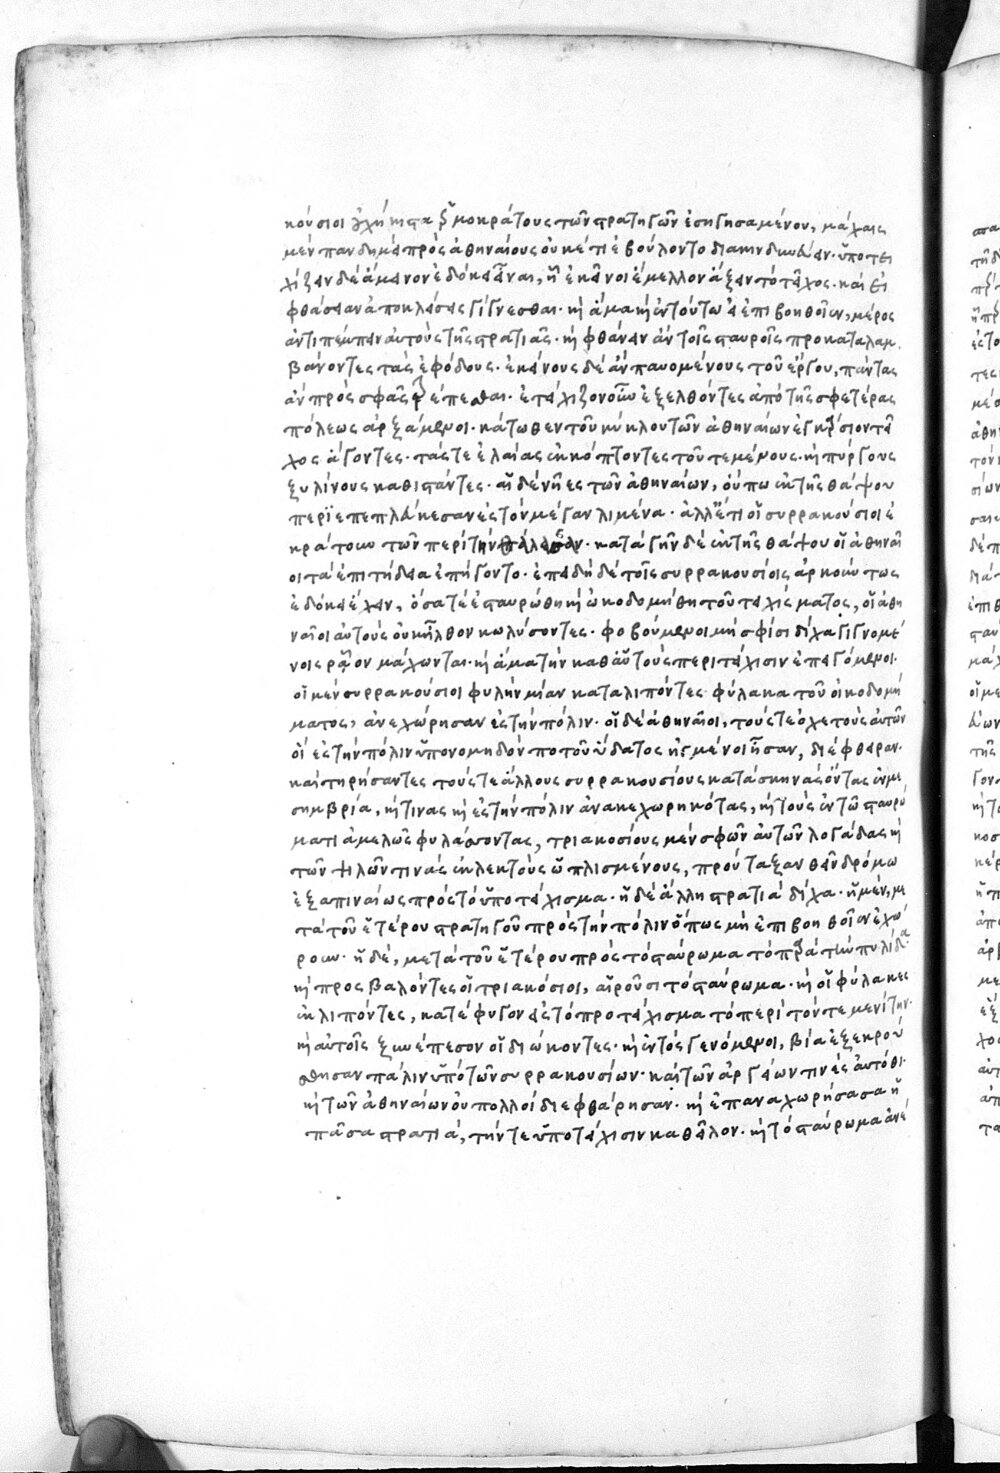 κούσιοι οὐχήκιστα ἑρμοκράτους τῶν στρατηγῶν ἐσηγησαμένου, μάχαις
μὲν πανδημεὶ πρὸς ἀθηναίους οὐκέτι ἐβούλοντο διακινδυνεύειν· ὑποτει
χίζειν δὲ ἄμεινον ἐδόκει εἶναι, ᾗ ἐκεῖνοι ἔμελλον ἄξειν τὸ τεῖχος· καὶ εἰ
φθάσειαν ἀποκλήσεις γίγνεσθαι· καὶ ἅμα καὶ ἐν τούτω εἰ ἐπιβοηθοῖεν, μέρος
ἀντιπέμπειν αὐτοὺς τῆς στρατιᾶς· καὶ φθάνειν ἂν τοῖς σταυροῖς προκαταλαμ
βάνοντες τὰς ἐφόδους· ἐκείνους δὲ ἂν παυομένους τοῦ ἔργου, πάντας
ἂν πρὸς σφᾶς τρέπεσθαι· ἐτείχιζον οὖν ἐξελθόντες ἀπὸ τῆς σφετέρας
πόλεως ἀρξάμενοι· κάτωθεν τοῦ κύκλου τῶν ἀθηναίων ἐγκάρσιον τεῖ
χος ἄγοντες· τάς τε ἐλαίας ἐκκόπτοντες τοῦ τεμένους· καὶ πύργους
ξυλίνους καθιστάντες· αἱ δὲ νῆες τῶν ἀθηναίων, οὔπω ἐκ τῆς θάψου
περϊεπεπλεύκεσαν ἐς τὸν μέγαν λιμένα· ἀλλ' ἔτι οἱ συρρακούσιοι ἐ
κράτουν τῶν περὶ τὴν κατὰ γῆν δὲ ἐκ τῆς θάψου οἱ ἀθηναῖ
οι τὰ ἐπιτήδεια ἐπήγοντο· ἐπειδὴ δὲ τοῖς συρρακουσίοις ἀρκούντως
ἐδόκει ἔχειν, ὅσα τε ἐσταυρώθη καὶ ὠκοδομήθη τοῦ τειχίσματος, οἱ ἀθη
ναῖοι αὐτοὺς οὐκ ἦλθον κωλύσοντες· φοβούμενοι μὴ σφίσι δίχα γιγνομέ
νοις ρᾷον μάχωνται· καὶ ἅμα τὴν καθ' αὑτοὺς περιτείχισιν ἐπειγόμενοι·
οἱ μὲν συρρακούσιοι φυλὴν μίαν καταλιπόντες φύλακα τοῦ οἰκοδομή
ματος, ἀνεχώρησαν ἐς τὴν πόλιν· οἱ δὲ ἀθηναῖοι, τούς τε ὀχετοὺς αὐτῶν
οἳ ἐς τὴν πόλιν ὑπονομηδὸν ποτοῦ ὕδατος ἠγμένοι ἦσαν, διέφθειραν·
καὶ τηρήσαντες τούς τε ἄλλους συρρακουσίους κατὰ σκηνὰς ὄντας ἐν με
σημβρία, καί τινας καὶ ἐς τὴν πόλιν ἀνακεχωρηκότας, καὶ τοὺς ἐν τῶ σταυρώ
ματι ἀμελῶς φυλάσσοντας, τριακοσίους μὲν σφῶν αὐτῶν λογάδας καὶ
τῶν ψιλῶν τινὰς ἐκλεκτοὺς ὡπλισμένους, προὔταξαν θεῖν δρόμω
ἐξαπιναίως πρὸς τὸ ὑποτείχισμα· ἡ δὲ ἄλλη στρατιὰ δίχα· ἡ μὲν, με
τὰ τοῦ ἑτέρου στρατηγοῦ πρὸς τὴν πόλιν ὅπως μὴ ἐπιβοηθοῖεν ἐχώ
ρουν· ἡ δὲ, μετὰ τοῦ ἑτέρου πρὸς τὸ σταύρωμα τὸ παρὰ τὴν πυλίδα·
καὶ προσβαλόντες οἱ τριακόσιοι, αἱροῦσι τὸ σταύρωμα· καὶ οἱ φύλακες
ἐκλιπόντες, κατέφυγον ἐς τὸ προτείχισμα τὸ περὶ τὸν τεμενίτην·
καὶ αὐτοῖς ξυνέπεσον οἱ διώκοντες· καὶ ἐντὸς γενόμενοι, βία ἐξεκρού
σθησαν πάλιν ὑπὸ τῶν συρρακουσίων· καὶ τῶν ἀργείων τινὲς αὐτόθι·
καὶ τῶν ἀθηναίων οὐ πολλοὶ διεφθάρησαν· καὶ ἐπαναχωρήσασα ἡ
πᾶσα στρατιὰ, τήν τε ὑποτείχισιν καθεῖλον· καὶ τὸ σταύρωμα ἀνέ